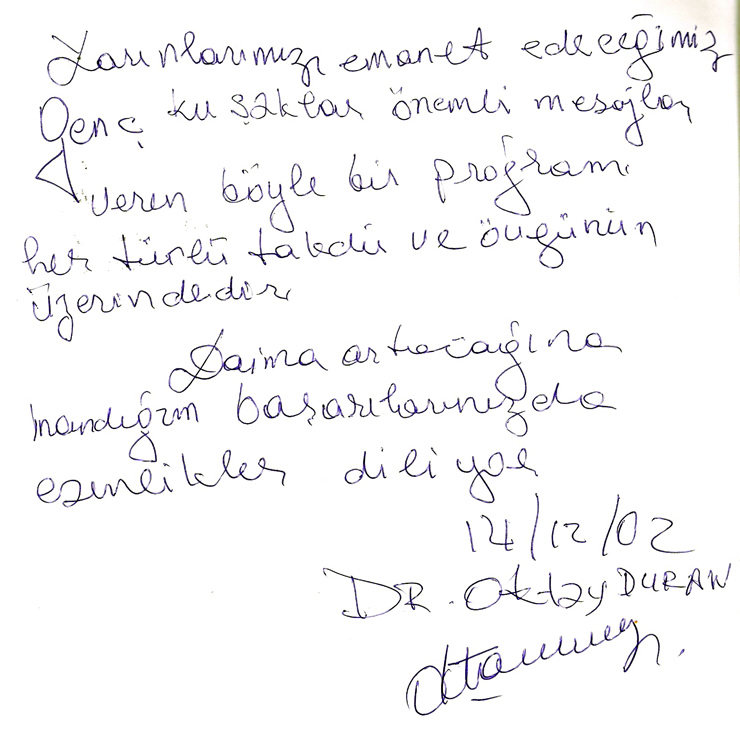 Yarınlarımızı emanet edeceğimiz
Genç kuşaklar önemli mesajlar
veren böyle bir programı
her türlü takdir ve övgünün
üzerindedir
Daima artacağına
inandığım başarılarınızda
esenlikler diliyor
14/12/02
DR. Oktay DURAN